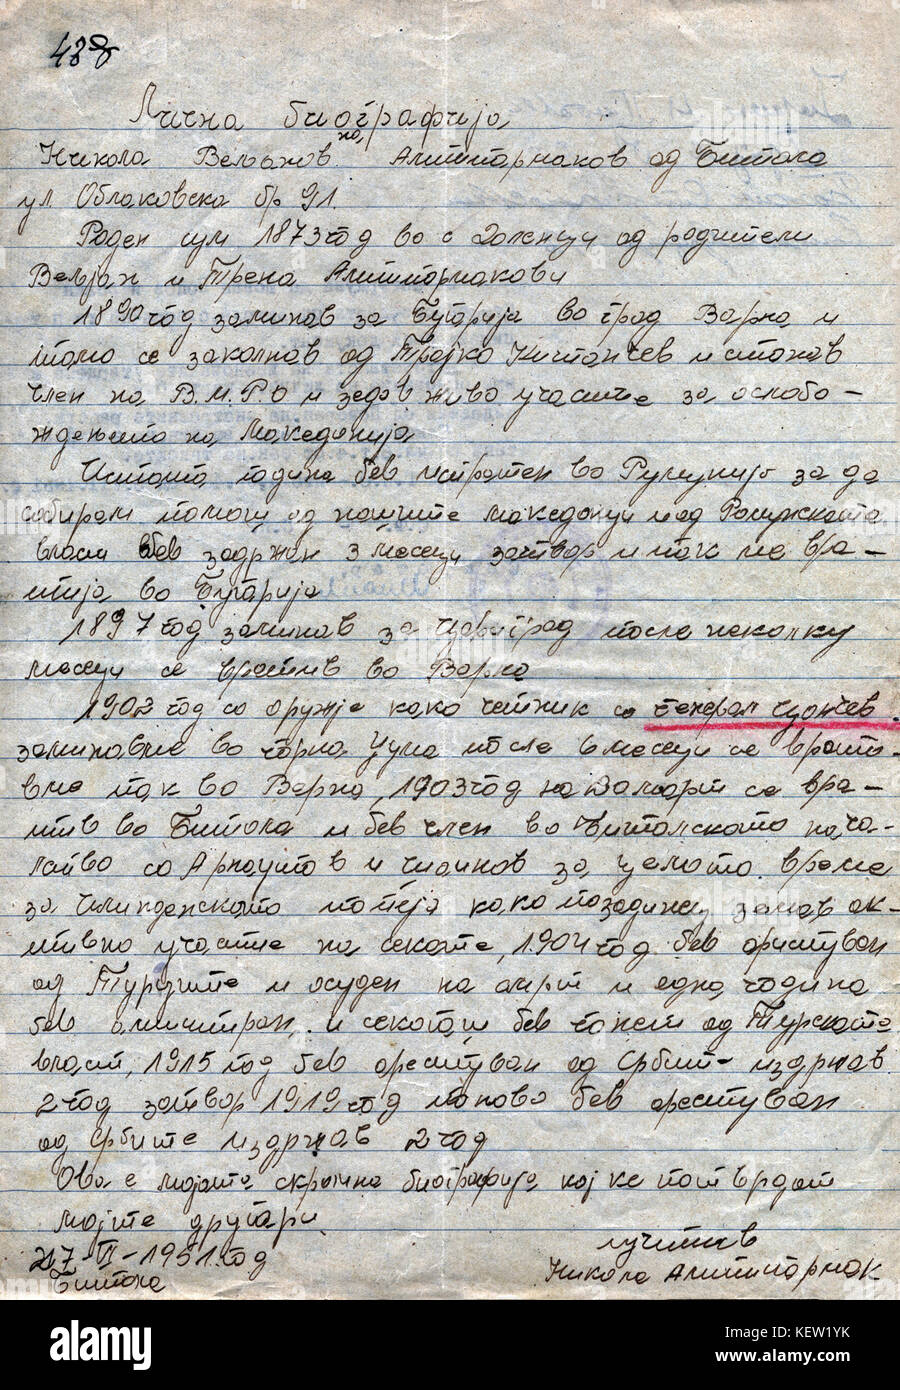 488
Лична биографија
на
Никола Вељанов Алтипармаков од Битола
ул Облаковска бр 91.
Роден сум 1873 год во с Доленци од родители
Вељан и Трена Алтипармакови
1890 год заминав за Бугарија во град Варна и
тамо се заколнав од Трајко Китанчев и станав
член на В.М.Р.О и зедов живо участие за ослобо-
ждењето на Македонија
Истата година бев испратен во Румунија за да
собирам помош од нашите македонци под Романската
власт бев задржан 3 месеци затвор и пак се вра-
тија во Бугарија
1897 год заминав за Цариград после неколку
месеци се вратив во Варна
1902 год со оружје како четник со Генерал Цончев.
заминавме во Горна Џумa после 6 месеци се врати-
вме пак во Варна, 1903 год на се вра-
тив во Битола и бев член во Битолското нача-
лство со Арнаутов и за целото време
за Илинденското како позадинец земав ак-
тивно участие на секаде, 1904 год бев арестуван
од Турците и осуден на смрт и една година
бев амнистиран. и секогаш бев гонет од Турската
власт, 1915 год бев арестуван од Србите издржав
2 год затвор 1919 год поново бев арестуван
од Србите издржав 2 год
Ова е мојата скромна биографија кој ке потврдат
мојте другари
27-VI-1951. год
Битола
Никола Алтипармак
alamy
Image ID: KEW1YK
www.alamy.com